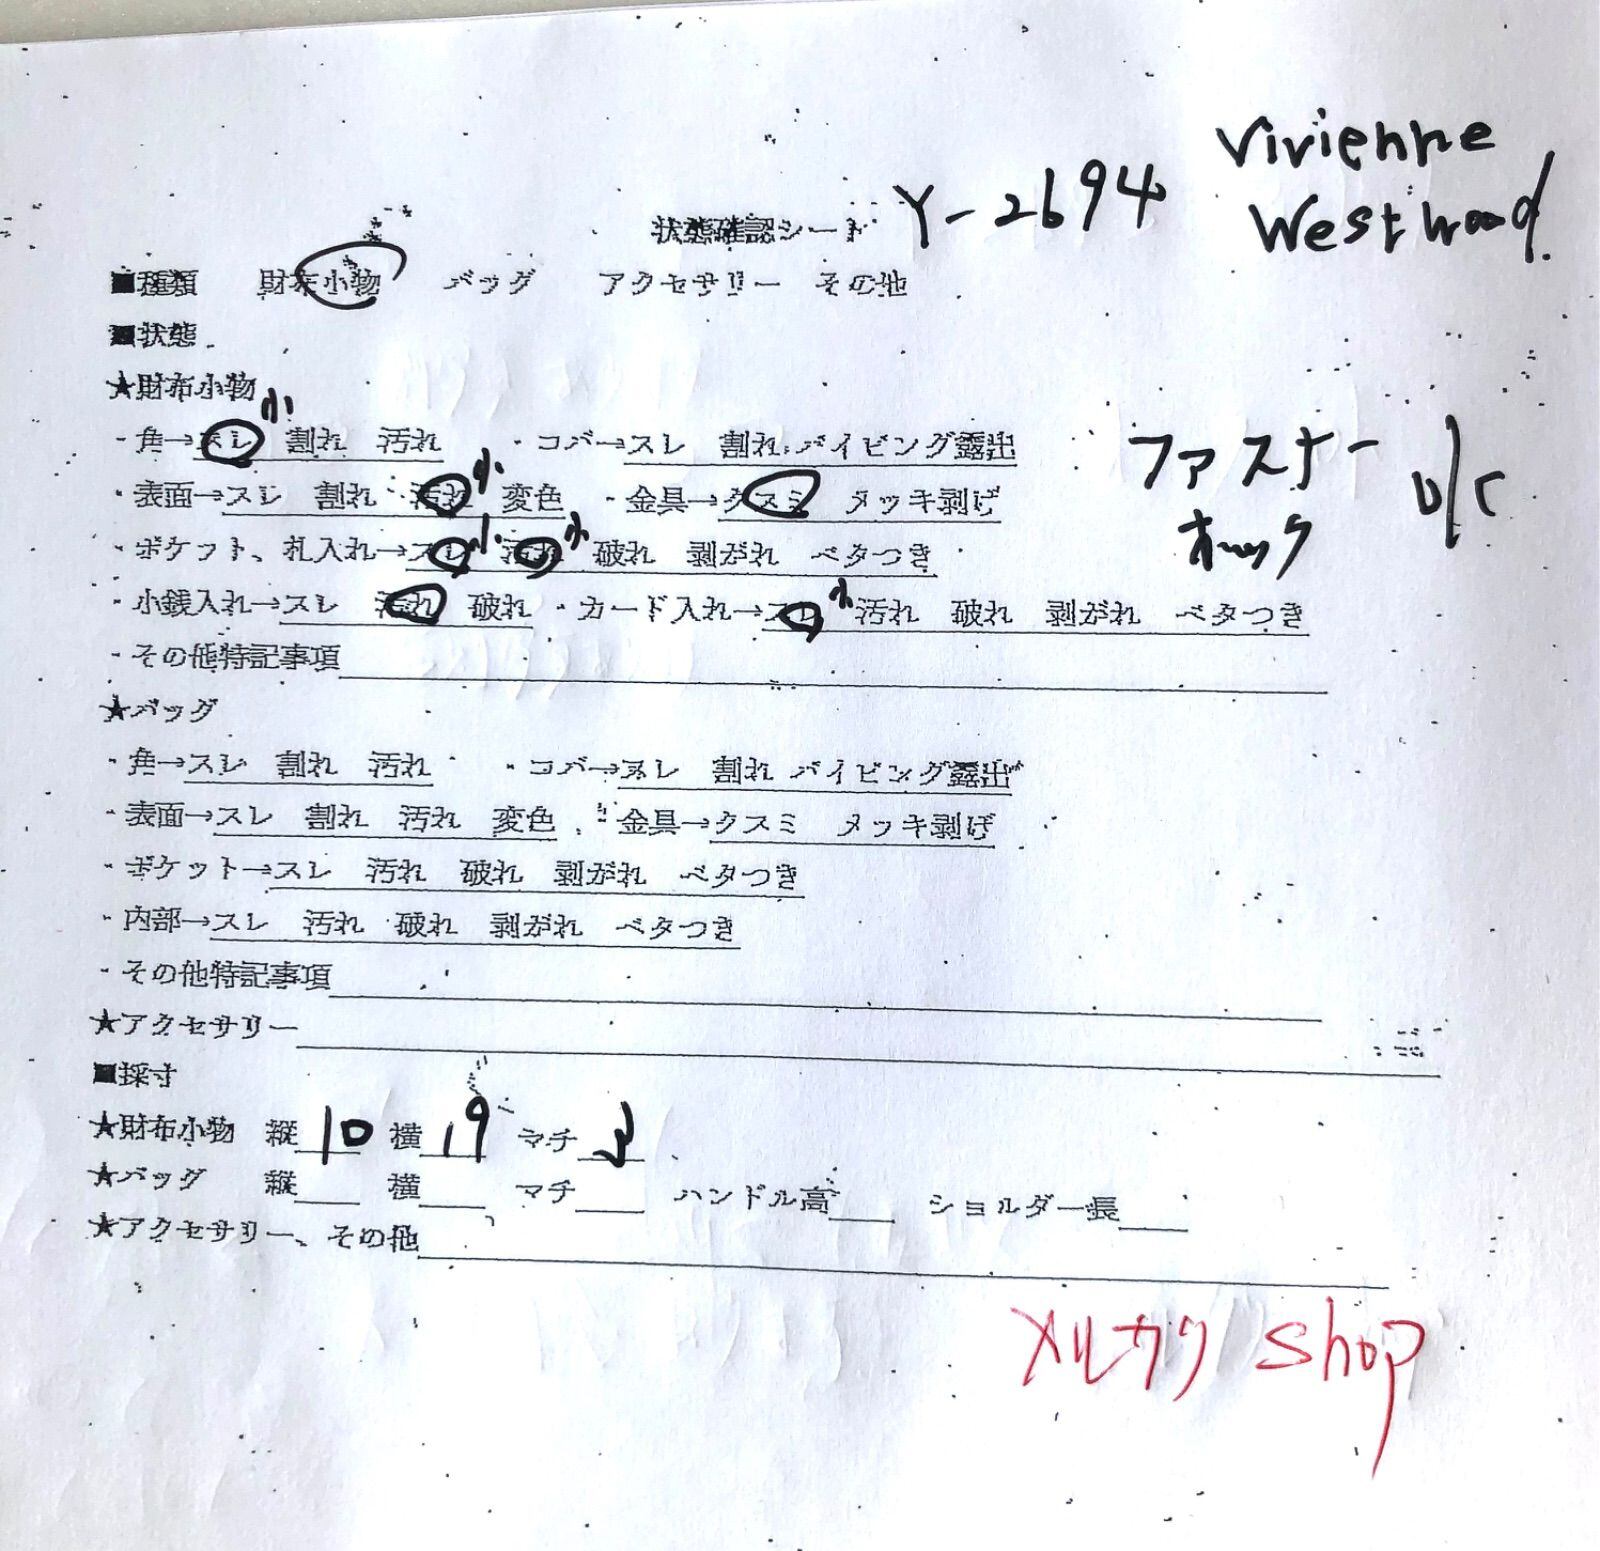 Vivienne
Westwood
状態確認シート Y-2694
■種類 財布小物 バッグ アクセサリー その他
■状態
★財布小物
・角→スレ 小 割れ 汚れ ・コバ→スレ 割れ パイピング露出
ファスナー
ホック
・表面→スレ 割れ 汚れ 小 変色 ・金具→クスミ メッキ剥げ
・ポケット、札入れ→スレ 小 汚れ 小 破れ 剥がれ ベタつき
・小銭入れ→スレ 汚れ 破れ ・カード入れ→スレ 小 汚れ 破れ 剥がれ ベタつき
・その他特記事項
★バッグ
・角→スレ 割れ 汚れ ・コバ→スレ 割れ パイピング露出
・表面→スレ 割れ 汚れ 変色 ・金具→クスミ メッキ剥げ
・ポケット→スレ 汚れ 破れ 剥がれ ベタつき
・内部→スレ 汚れ 破れ 剥がれ ベタつき
・その他特記事項
★アクセサリー
■採寸
★財布小物 縦 10 横 19 マチ 3
★バッグ 縦 横 マチ ハンドル高 ショルダー長
★アクセサリー、その他
メルカリ shop